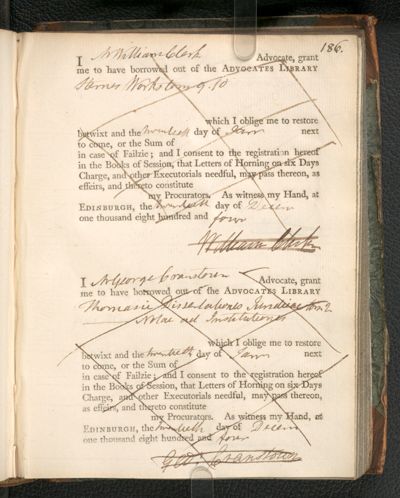 186.
I Mr William Clerk Advocate, grant
me to have borrowed out of the ADVOCATES LIBRARY
Works tom 9. 10
which I oblige me to restore
betwixt and the twentieth day of Janr next
to come, or the Sum of
in case of Failzie; and I consent to the registration hereof
in the Books of Session, that Letters of Horning on six Days
Charge, and other Executorials needful, may pass thereon, as
effeirs, and thereto constitute
my Procurators. As witness my Hand, at
EDINBURGH, the twentieth day of Decem
one thousand eight hundred and four
William Clerk
I Mr George Cranstown Advocate, grant
me to have borrowed out of the ADVOCATES LIBRARY
Thomasii Dissertationes Juridicae tom 2
Notae ad Institutiones
which I oblige me to restore
betwixt and the twentieth day of Janr next
to come, or the Sum of
in case of Failzie; and I consent to the registration hereof
in the Books of Session, that Letters of Horning on six Days
Charge, and other Executorials needful, may pass thereon,
as effeirs, and thereto constitute
my Procurators. As witness my Hand, at
EDINBURGH, the twentieth day of Decem
one thousand eight hundred and four
Geo. Cranstown